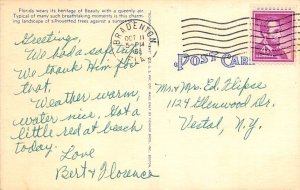 Florida wears its heritage of Beauty with a queenly air.
Typical of many such breathtaking moments is this charm-
ing landscape of silhouetted trees against a
BRADENTON,
OCT 11
PM
FLA
POST CARD
Greeting,
We had a safe trip
We thank Him for
that.
Weather warm,
water nice. Got a
little red at beach
today.
Love
Bert & Florence
Mr & Mrs. Ed. Flipse
1124 Glenwood Dr.
Vestal, N.Y.